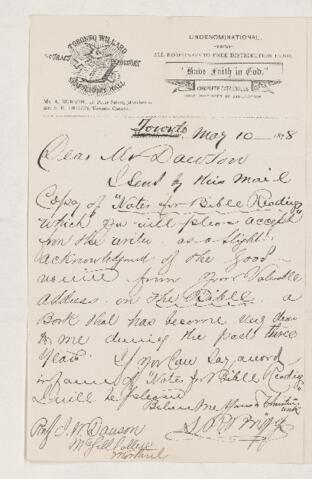 TORONTO WILLARD TRACT DEPOSITORY
UNDENOMINATIONAL.
ALL RECEIPTS TO FREE DISTRIBUTION FUND.
"Have Faith in God."
Toronto May 10 1878
Dear Mr Dawson
I send by this mail
Copy of "Notes for Bible Readings"
which you will please accept
from the writer as a slight
acknowledgment of the good
received from your valuable
address on the Bible a
Book that has become very dear
to me during the past three
years. If you can say a word
in favor of "Notes for Bible Readings"
I will be pleased
Believe me yours in Christian work
Prof J. W. Dawson
McGill College
Montreal